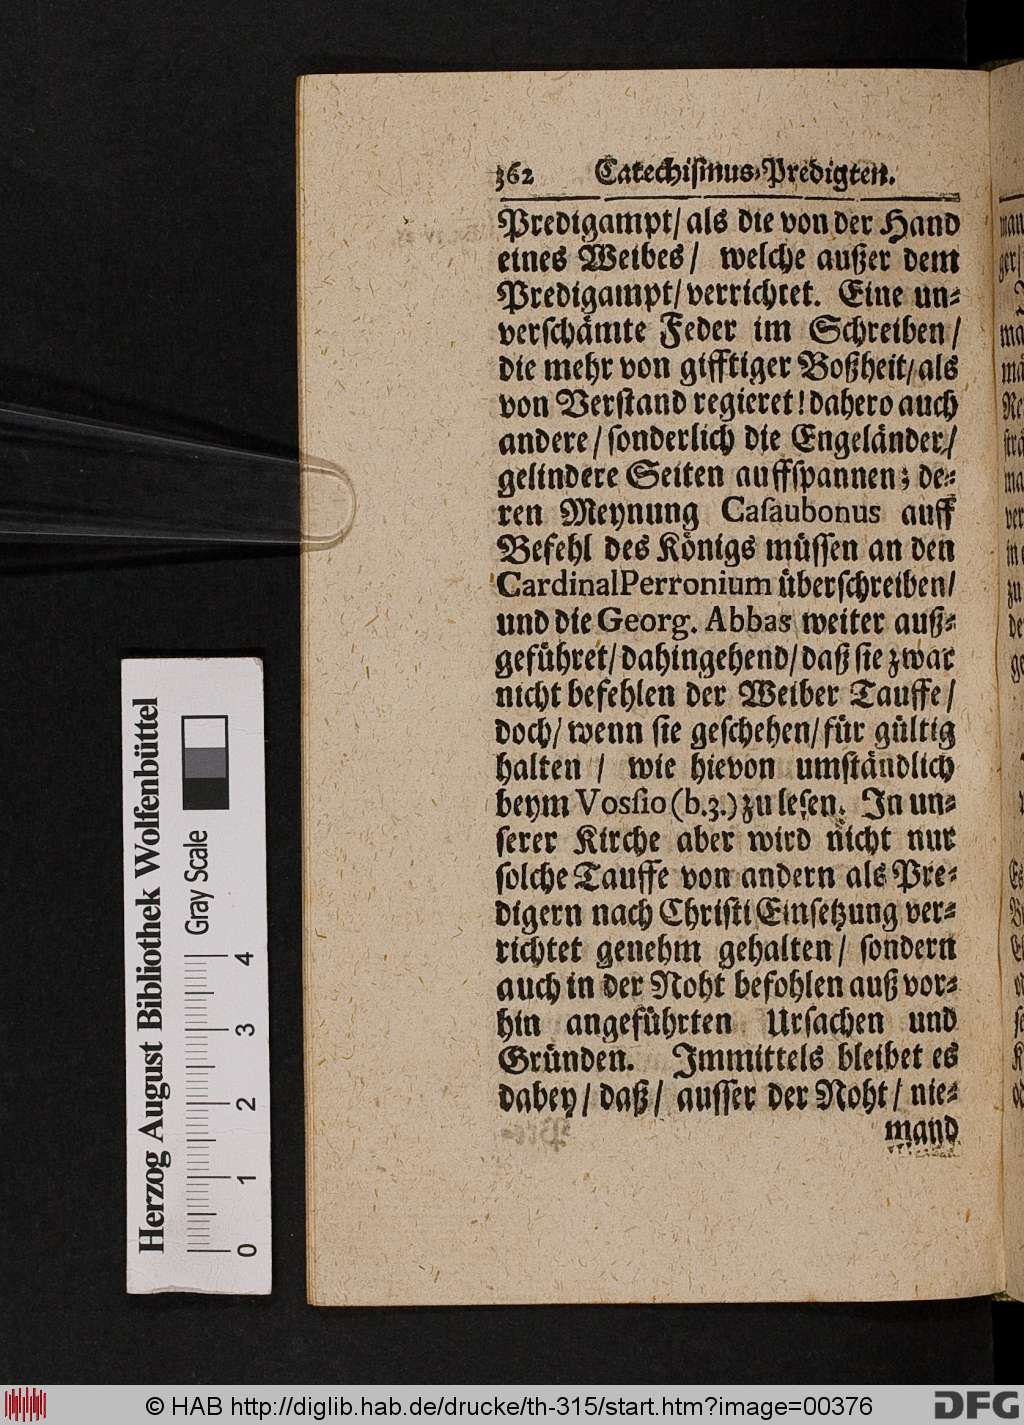 362 Catechiſmus-Predigten.
Predigampt/ als die von der Hand
eines Weibes/ welche außer dem
Predigampt/ verrichtet. Eine un-
verſchämte Feder im Schreiben/
die mehr von gifftiger Boßheit/ als
von Verſtand regieret! dahero auch
andere/ ſonderlich die Engeländer/
gelindere Seiten auffſpannen; de-
ren Meynung Caſaubonus auff
Befehl des Königs müſſen an den
Cardinal Perronium überſchreiben/
und die Georg. Abbas weiter auß-
geführet/ dahingehend/ daß ſie zwar
nicht befehlen der Weiber Tauffe/
doch/ wenn ſie geſchehen/ für gültig
halten / wie hievon umſtändlich
beym Vosſio (b.3.) zu leſen. In un-
ſerer Kirche aber wird nicht nur
ſolche Tauffe von andern als Pre-
digern nach Chriſti Einſetzung ver-
richtet genehm gehalten/ ſondern
auch in der Noht befohlen auß vor-
hin angeführten Urſachen und
Gründen. Immittels bleibet es
dabey/ daß/ auſſer der Noht/ nie-
mand
Herzog August Bibliothek Wolfenbüttel
Gray Scale
0 1 2 3 4
© HAB http://diglib.hab.de/drucke/th-315/start.htm?image=00376
DFG